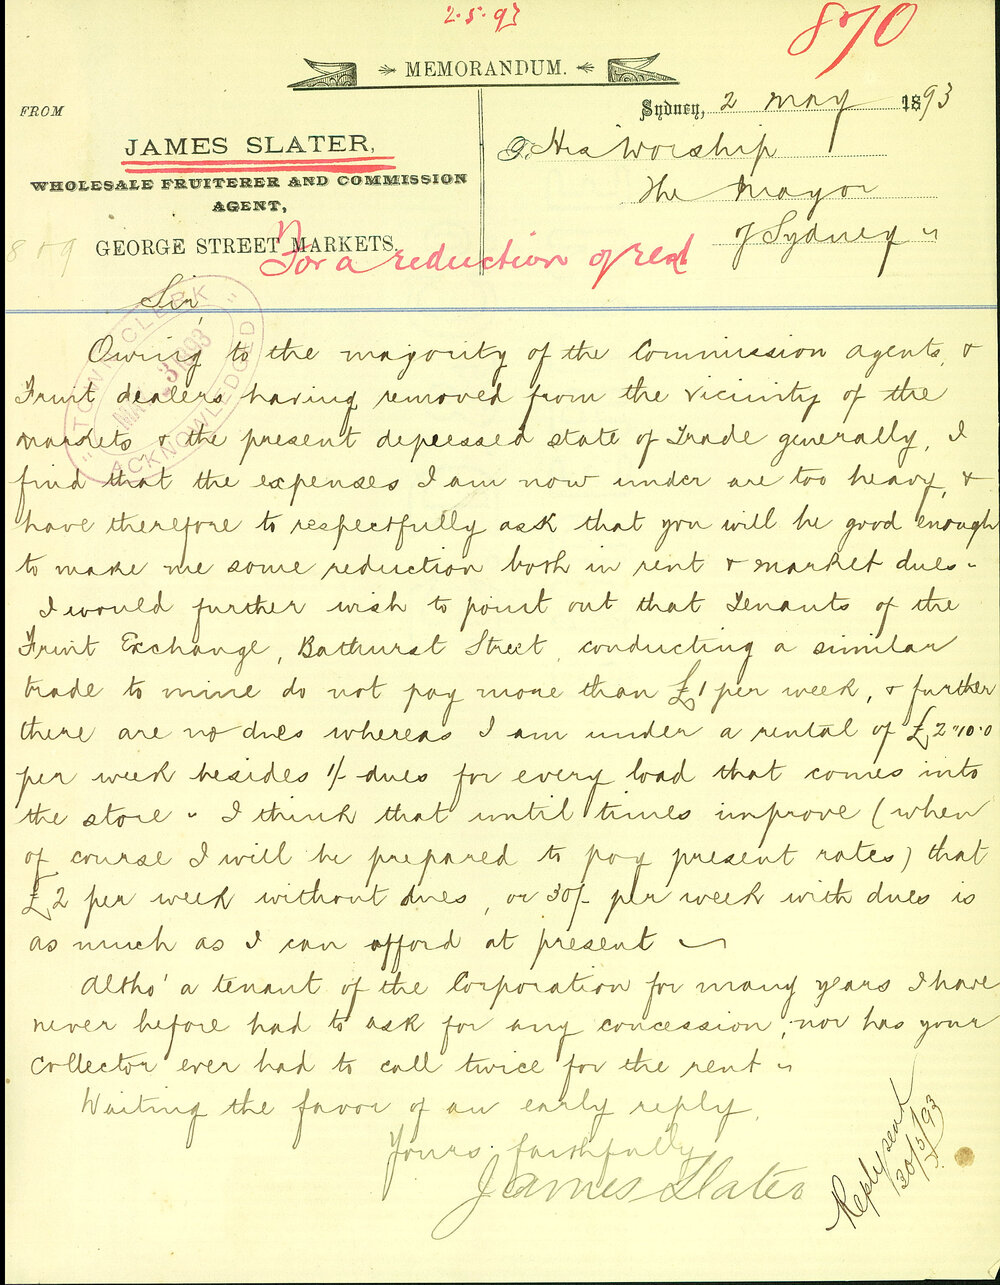 2.5.93
870
MEMORANDUM.
FROM
Sydney, 2 May 1893
JAMES SLATER,
To His Worship
WHOLESALE FRUITERER AND COMMISSION
The Mayor
AGENT,
of Sydney "
809
GEORGE STREET MARKETS.
For a reduction of rent
Sir,
TOWN CLERK
3 93
ACKNOWLEDGED
Owing to the majority of the Commission agents, &
Fruit dealers having removed from the vicinity of the
markets & the present depressed state of Trade generally, I
find that the expenses I am now under are too heavy, &
have therefore to respectfully ask that you will be good enough
to make me some reduction both in rent & market dues -
I would further wish to point out that Tenants of the
Fruit Exchange, Bathurst Street, conducting a similar
trade to mine do not pay more than £1 per week, & further
there are no dues whereas I am under a rental of £2"10.0
per week besides 1/- dues for every load that comes into
the store " I think that until times improve (when
of course I will be prepared to pay present rates) that
£2 per week without dues, or 30/- per week with dues is
as much as I can afford at present ~
Altho' a tenant of the Corporation for many years I have
never before had to ask for any concession, nor has your
Collector ever had to call twice for the rent "
Waiting the favor of an early reply,
Yours faithfully
James Slater
Reply sent
30/5/93